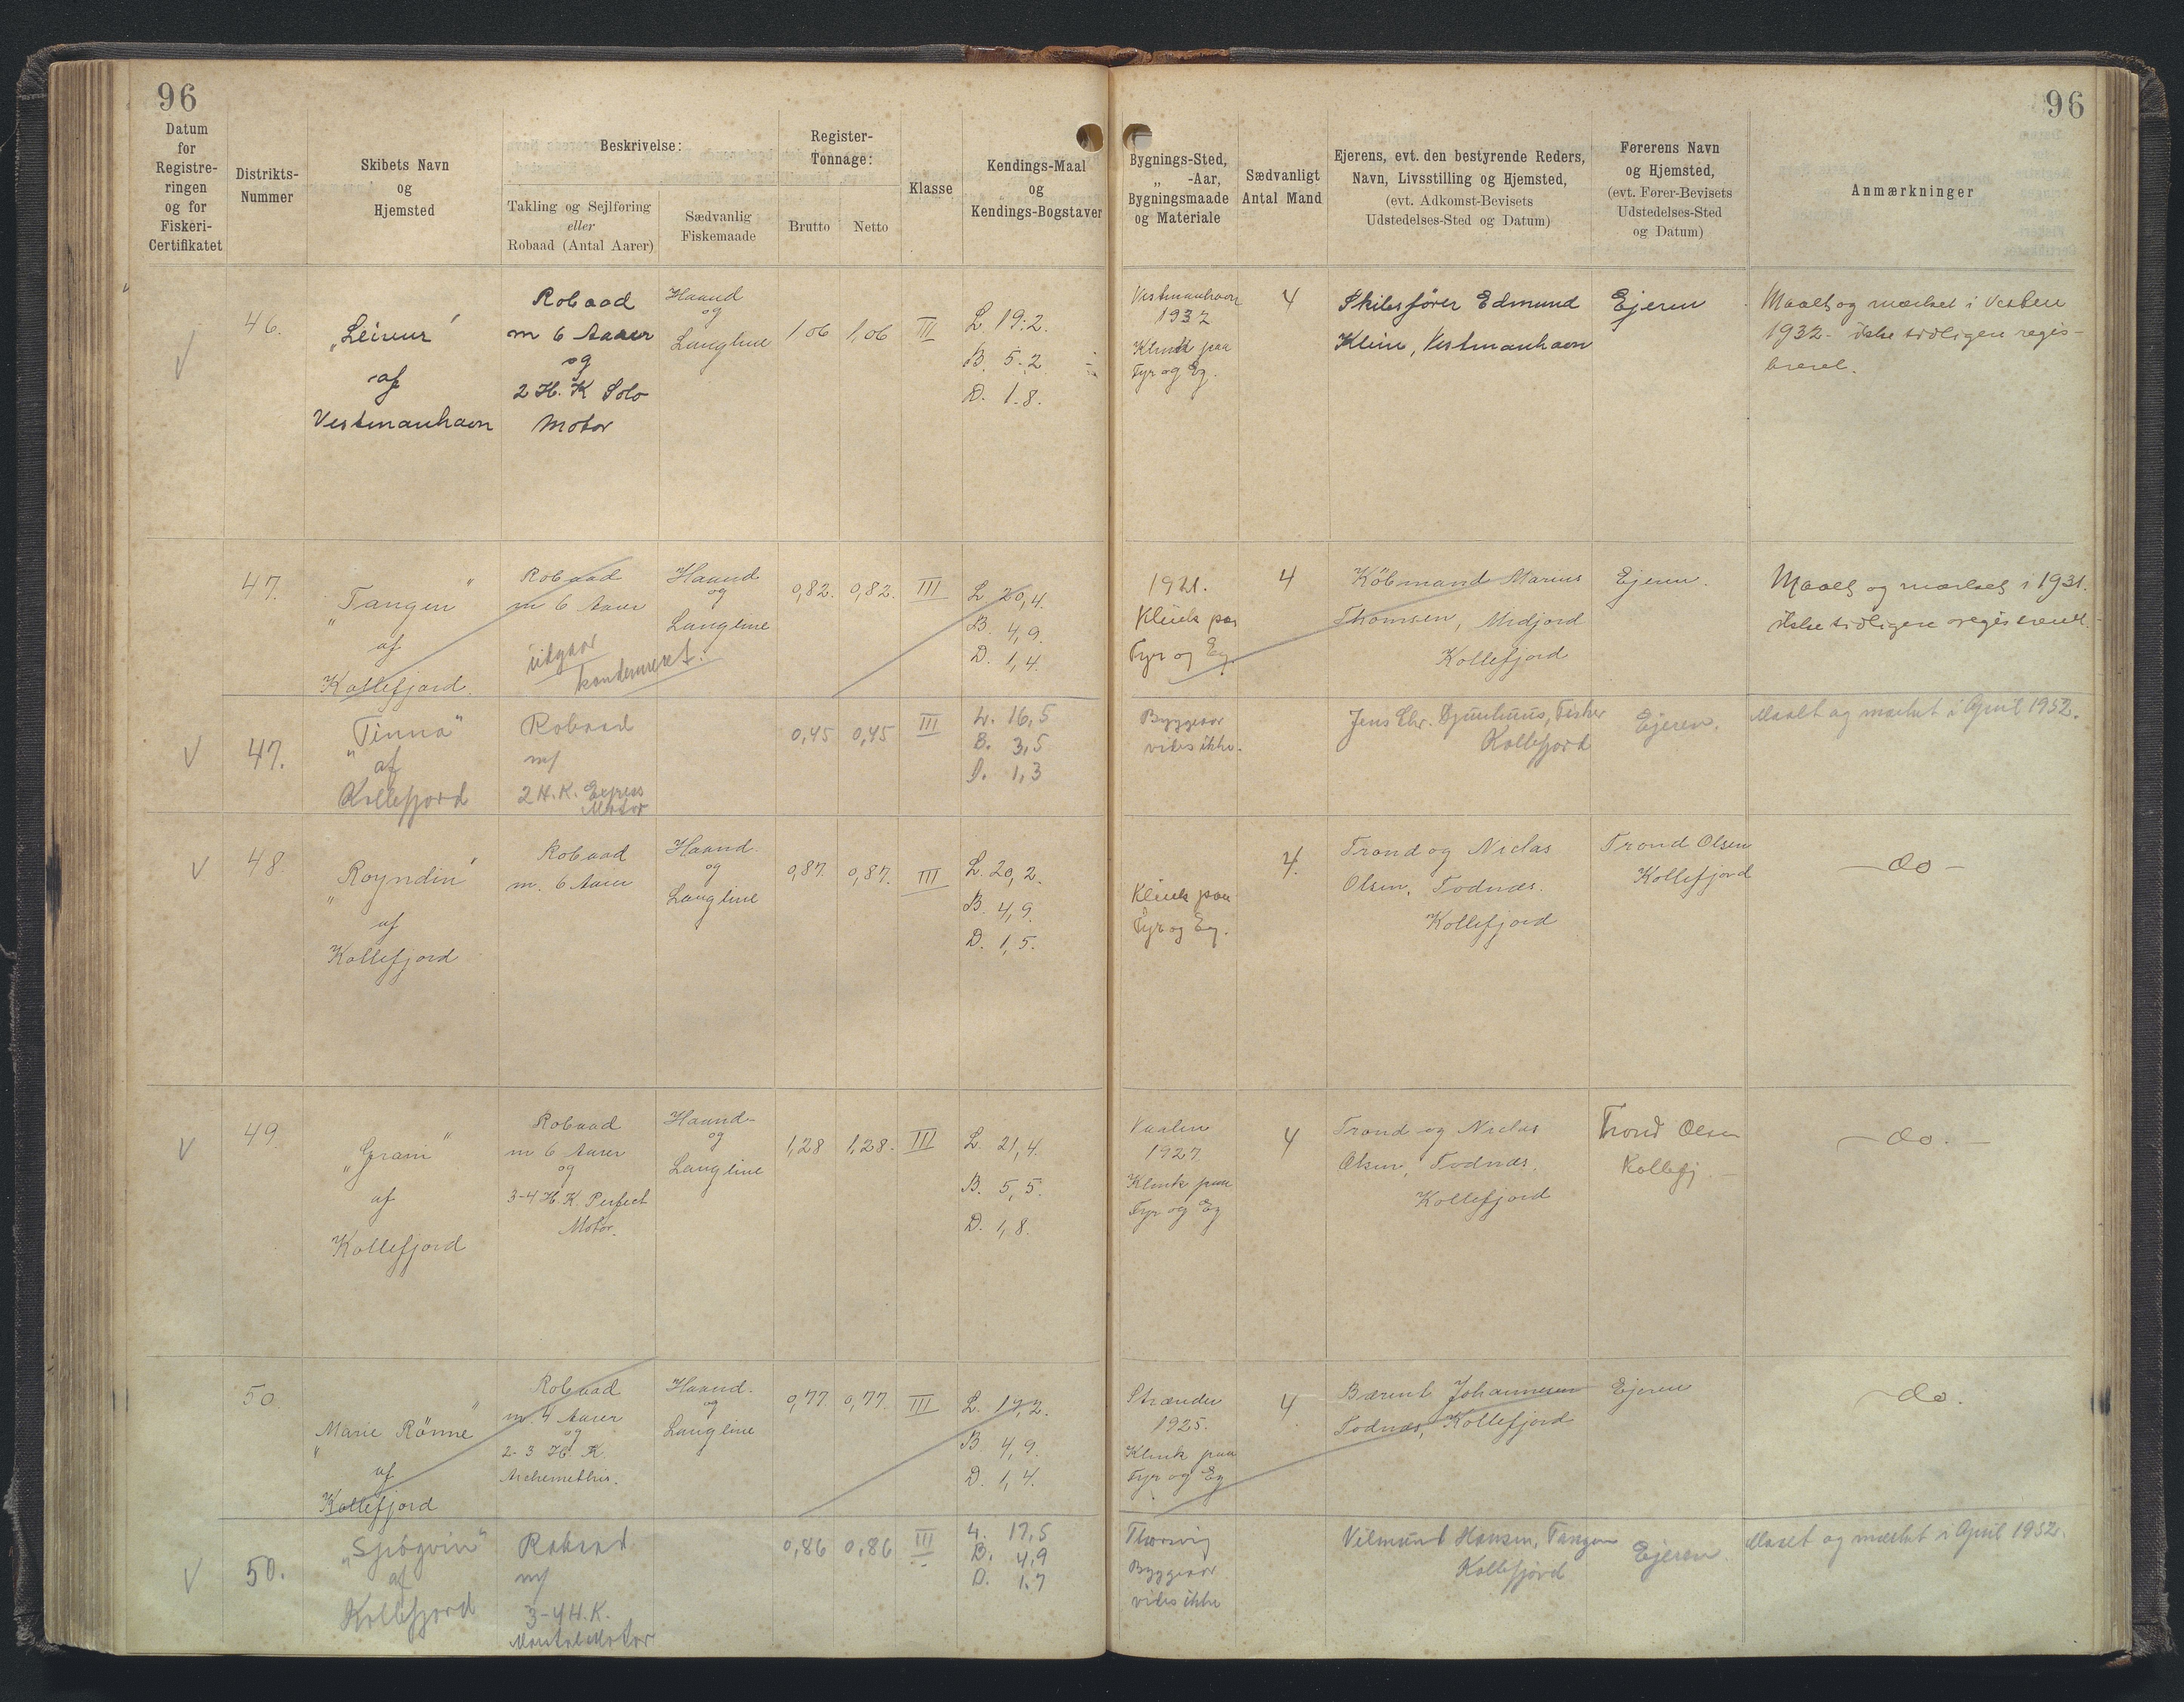 96
96
Datum
for
Registre-
ringen
og for
Fiskeri-
Certifikatet
Distrikts-
Nummer
Skibets Navn
og
Hjemsted
Beskrivelse:
Takling og Sejlføring
eller
Robaad (Antal Aarer)
Sædvanlig
Fiskemaade
Register-
Tonnage:
Brutto
Netto
Klasse
Kendings-Maal
og
Kendings-Bogstaver
Bygnings-Sted,
„ -Aar,
Bygningsmaade
og Materiale
Sædvanligt
Antal Mand
Ejerens, evt. den bestyrende Reders,
Navn, Livsstilling og Hjemsted,
(evt. Adkomst-Bevisets
Udstedelses-Sted og Datum)
Førerens Navn
og Hjemsted,
(evt. Fører-Bevisets
Udstedelses-Sted
og Datum)
Anmærkninger
√
46.
„Leivur"
af
Vestmanhavn
Robaad
m 6 Aarer
og
2 H.K Solo
Motor
Haand
og
Langline
1,06
1,06
III
L. 19.2.
B. 5.2
D. 1.8.
Vestmanhavn
1932
Klink paa
Fyr og Eg.
4
Skibsfører Edmund
Klein, Vestmanhavn
Ejeren
Maalt og mærket i
1932 - ikke tidligere regis-
treret.
47.
„Tangen"
af
Kollefjord.
Robaad
m 6 Aarer
udgaar
kondemneret.
Haand
og
Langline
0,82.
0,82.
III
L 20,4.
B. 4,9.
D. 1,4.
1921.
Klink paa
Fyr og Eg.
4
Købmand Marius
Thomsen, Midjord
Kollefjord
Ejeren.
Maalt og mærket i 1931.
ikke tidligere registreret.
√
47.
„Tinna"
af
Kollefjord
Robaad
m/
2 H.K. Express
Motor
0,45
0,45
III
L. 16,5
B. 3,5
D. 1,3
Byggeaar
vides ikke.
Jens Chr. Djurhuus, Fisker
Kollefjord
Ejeren.
Maalt og mærket i April 1952.
√
48.
„Royndin"
af
Kollefjord
Robaad
m. 6 Aarer
Haand
og
Langline
0,87.
0,87.
III
L. 20,2.
B. 4,9.
D. 1,5.
Klink paa
Fyr og Eg.
4.
Trond og Niclas
Olsen, Todnæs.
Kollefjord
Trond Olsen
Kollefjord
- do -
√
49.
„Grani"
af
Kollefjord
Robaad
m 6 Aarer
og
3-4 H.K Perfect
Motor.
Haand-
og
Langline
1,28
1,28.
III
L. 21,4.
B. 5,5.
D. 1,8.
1927
Klink paa
Fyr og Eg
4
Trond og Niclas
Olsen, Todnæs.
Kollefjord
Trond Olsen
Kollefj.
- do. -
50
„Marie Rönne"
af
Kollefjord
Robaad
m. 4 Aarer
og
2-3 H.K.
Haand.
og
Langline
0,77.
0,77.
III
L. 19,2.
B. 4,9.
D. 1,4.
Strænder
1925.
Klink paa
Fyr og Eg
4
Barent Johannesen
Todnæs, Kollefjord
Ejeren
- do.
√
50.
„Sjógvin"
af
Kollefjord
Robaad
m/
3-4 H.K.
Motor
0,86
0,86
III
L. 17,5
B. 4,9
D. 1.7
Thorsvig
Byggeaar
vides ikke
Vilmund Hansen, Tangen
Kollefjord
Ejeren
Maalt og mærket i April 1952.